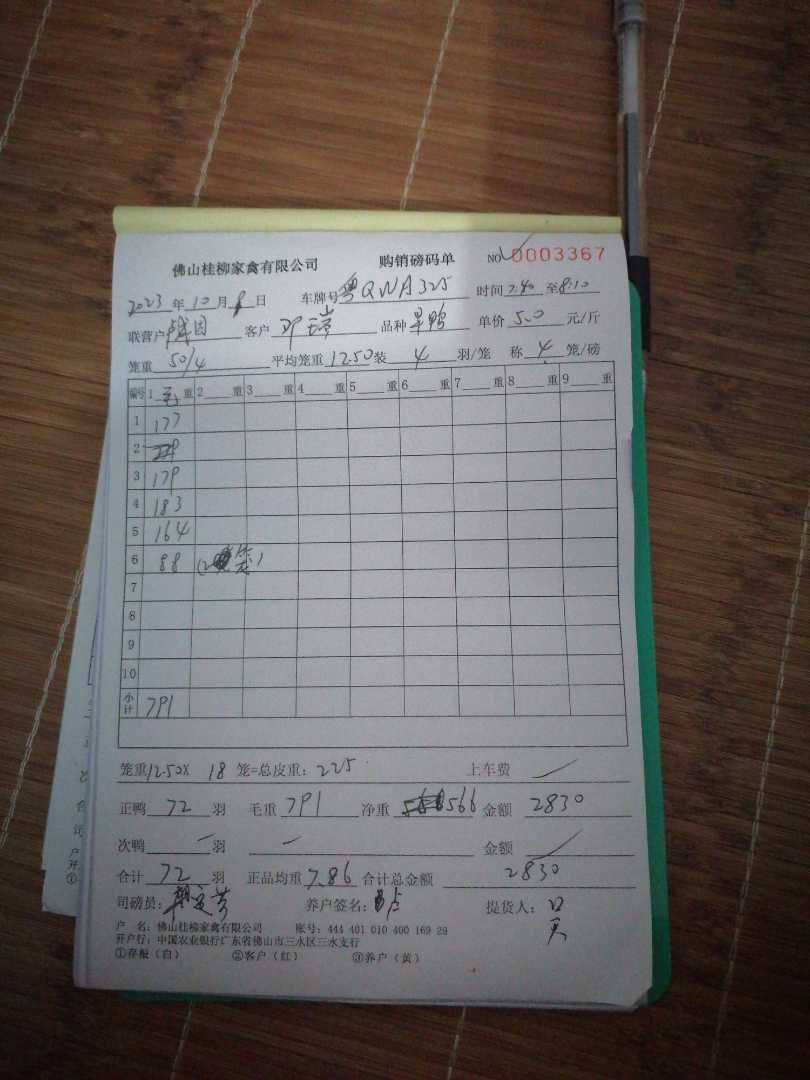 佛山桂柳家禽有限公司 购销磅码单 NO 0003367
2023年10月8日 车牌号粤QWA325 时间7:40至8:10
联营户 客户邓 品种旱鸭 单价5.00元/斤
笼重50/4 平均笼重12.50装4羽/笼 称4笼/磅
编号 1重 2重 3重 4重 5重 6重 7重 8重 9重
1 177
2
3 179
4 183
5 164
6 88 (2笼)
7
8
9
10
小计 791
笼重12.50X 18笼=总皮重:225 上车费
正鸭72羽 毛重791 净重566 金额2830
次鸭羽 金额
合计72羽 正品均重7.86 合计总金额2830
司磅员: 养户签名:卢 提货人:
户 名:佛山桂柳家禽有限公司 账号:444 401 010 400 169 29
开户行:中国农业银行广东省佛山市三水区三水支行
①存根(白) ②客户(红) ③养户(黄)